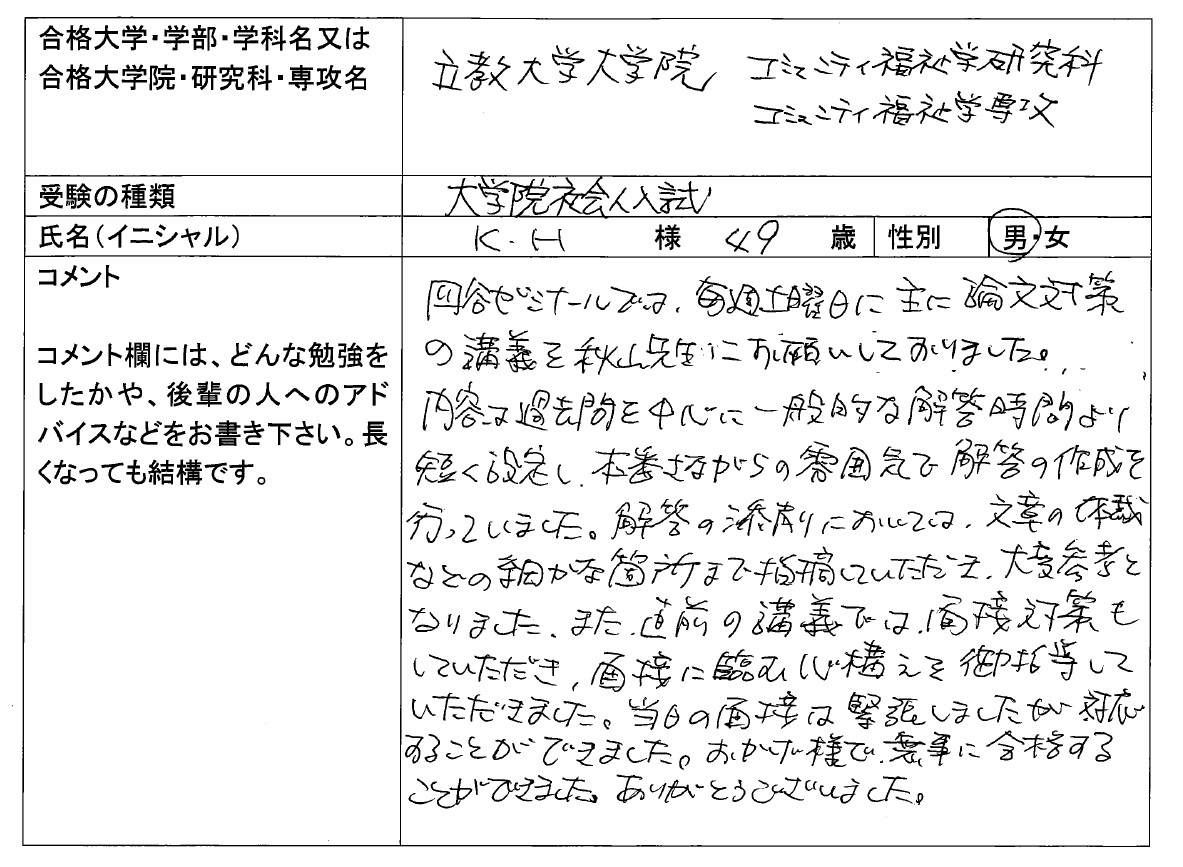 合格大学・学部・学科名又は
合格大学院・研究科・専攻名
立教大学大学院 コミュニティ福祉学研究科
コミュニティ福祉学専攻
受験の種類
大学院社会人入試
氏名（イニシャル）
K・H 様 49 歳 性別 男・女
コメント
コメント欄には、どんな勉強を
したかや、後輩の人へのアド
バイスなどをお書き下さい。長
くなっても結構です。
ゼミナールでは、毎週土曜日に主に論文対策
の講義を秋山先生にお願いしておりました。
内容は過去問を中心に一般的な解答時間より
短く設定し、本番さながらの雰囲気で解答の作成を
行っていました。解答の添削においては、文章の体裁
などの細かな箇所まで指摘していただき、大変参考と
なりました。また、直前の講義では、面接対策も
していただき、面接に臨む心構えを御指導して
いただきました。当日の面接は緊張しましたが対応
することができました。おかげ様で、無事に合格する
ことができました。ありがとうございました。